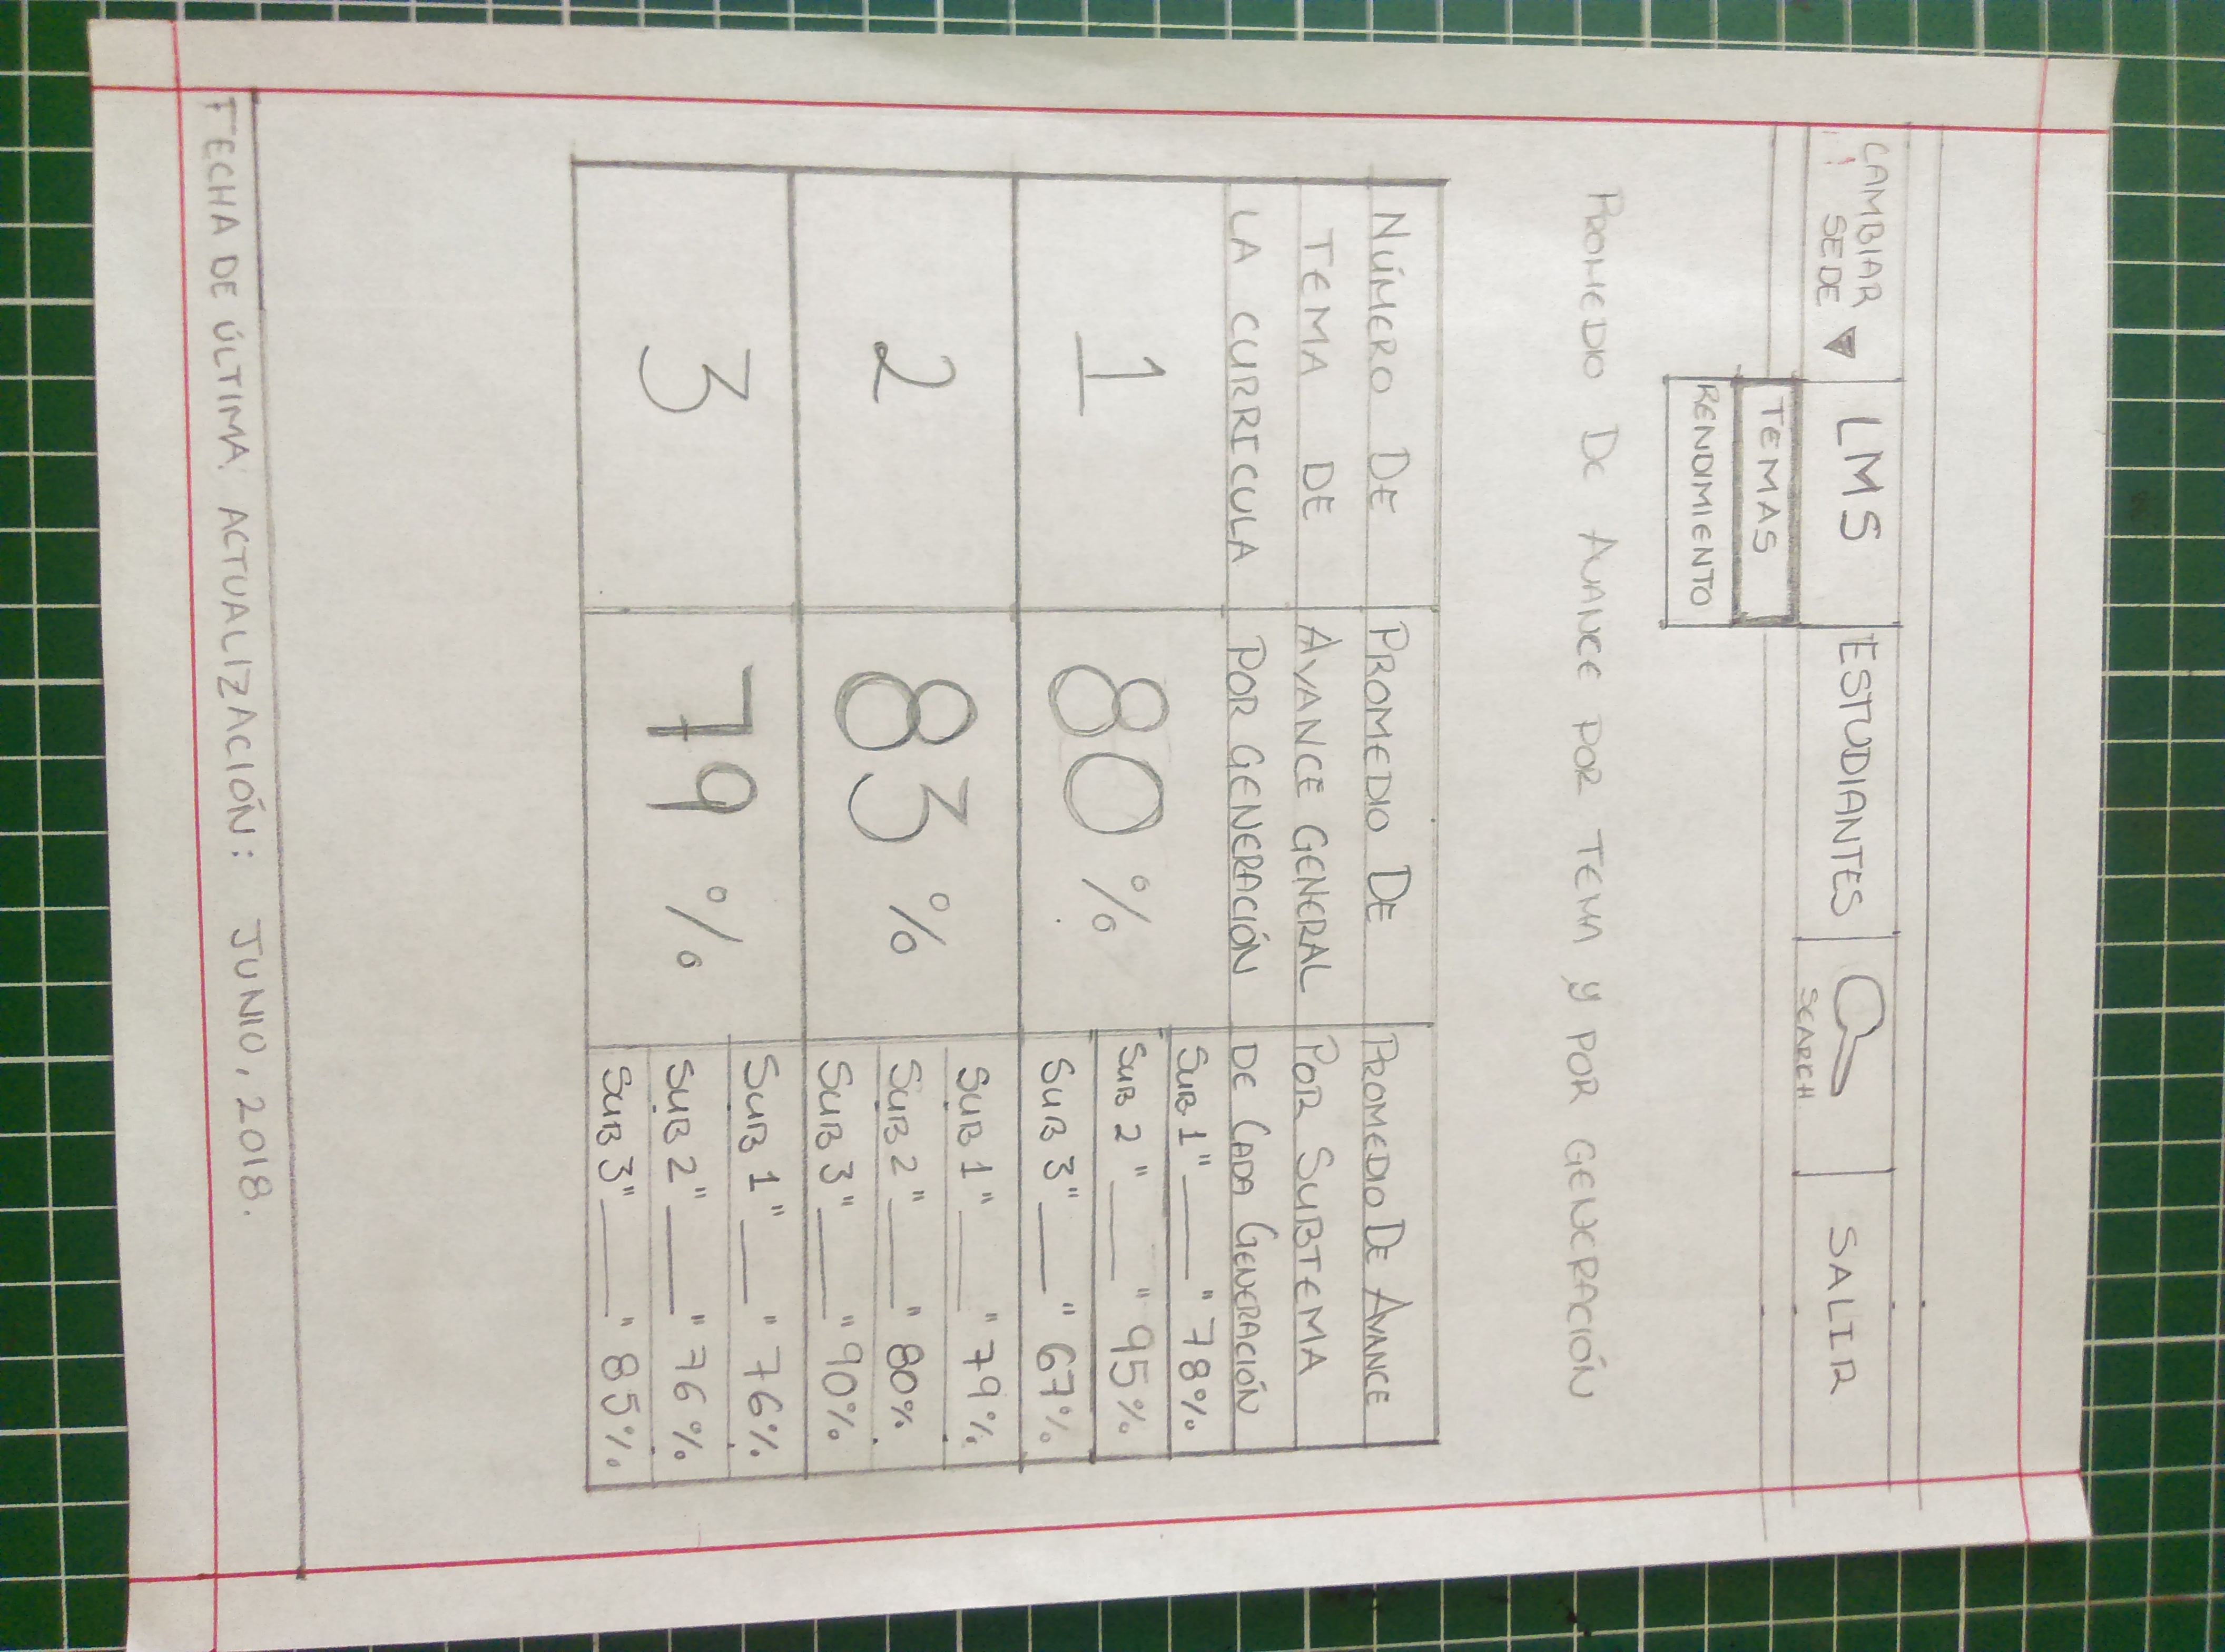 CAMBIAR
SEDE ▼
LMS
ESTUDIANTES
SEARCH
SALIR
TEMAS
RENDIMIENTO
PROMEDIO DE AVANCE POR TEMA Y POR GENERACIÓN
NÚMERO DE
TEMA DE
LA CURRICULA
PROMEDIO DE
AVANCE GENERAL
POR GENERACIÓN
PROMEDIO DE AVANCE
POR SUBTEMA
DE CADA GENERACIÓN
1
80 %
SUB 1 "___" 78%
SUB 2 "___" 95%
SUB 3 "___" 67%
2
83 %
SUB 1 "___" 79%
SUB 2 "___" 80%
SUB 3 "___" 90%
3
79 %
SUB 1 "___" 76%
SUB 2 "___" 76%
SUB 3 "___" 85%
FECHA DE ÚLTIMA ACTUALIZACIÓN: JUNIO, 2018.